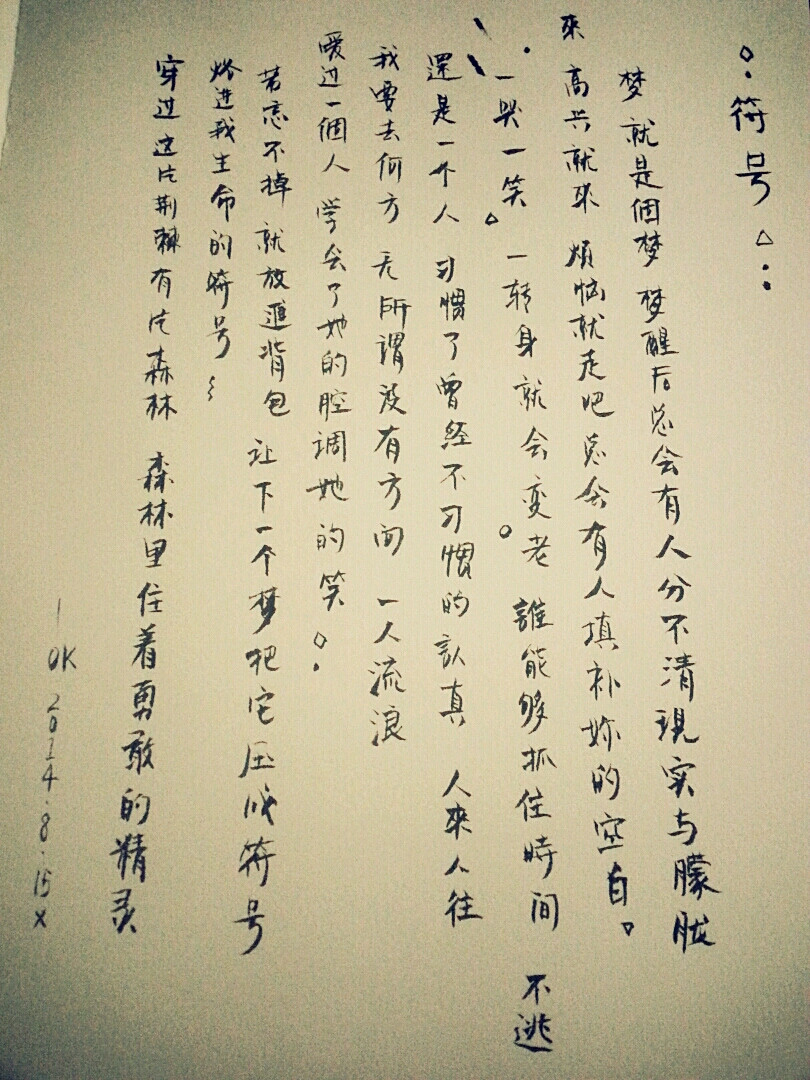 符号
梦就是個梦 梦醒后总会有人分不清現实与朦胧
來 高兴就來 煩恼就走吧总会有人填补妳的空白。
一哭一笑。一转身就会变老。誰能够抓住時间 不逃
還是一个人 习惯了曾经不习惯的认真 人來人往
我要去何方 无所谓没有方向 一人流浪
暖过一個人 学会了她的腔调她的笑。
若忘不掉 就放進背包 让下一个梦把它压成符号
烙进我生命的符号
穿过这片荆棘有片森林 森林里住着勇敢的精灵
OK 2014.8.15